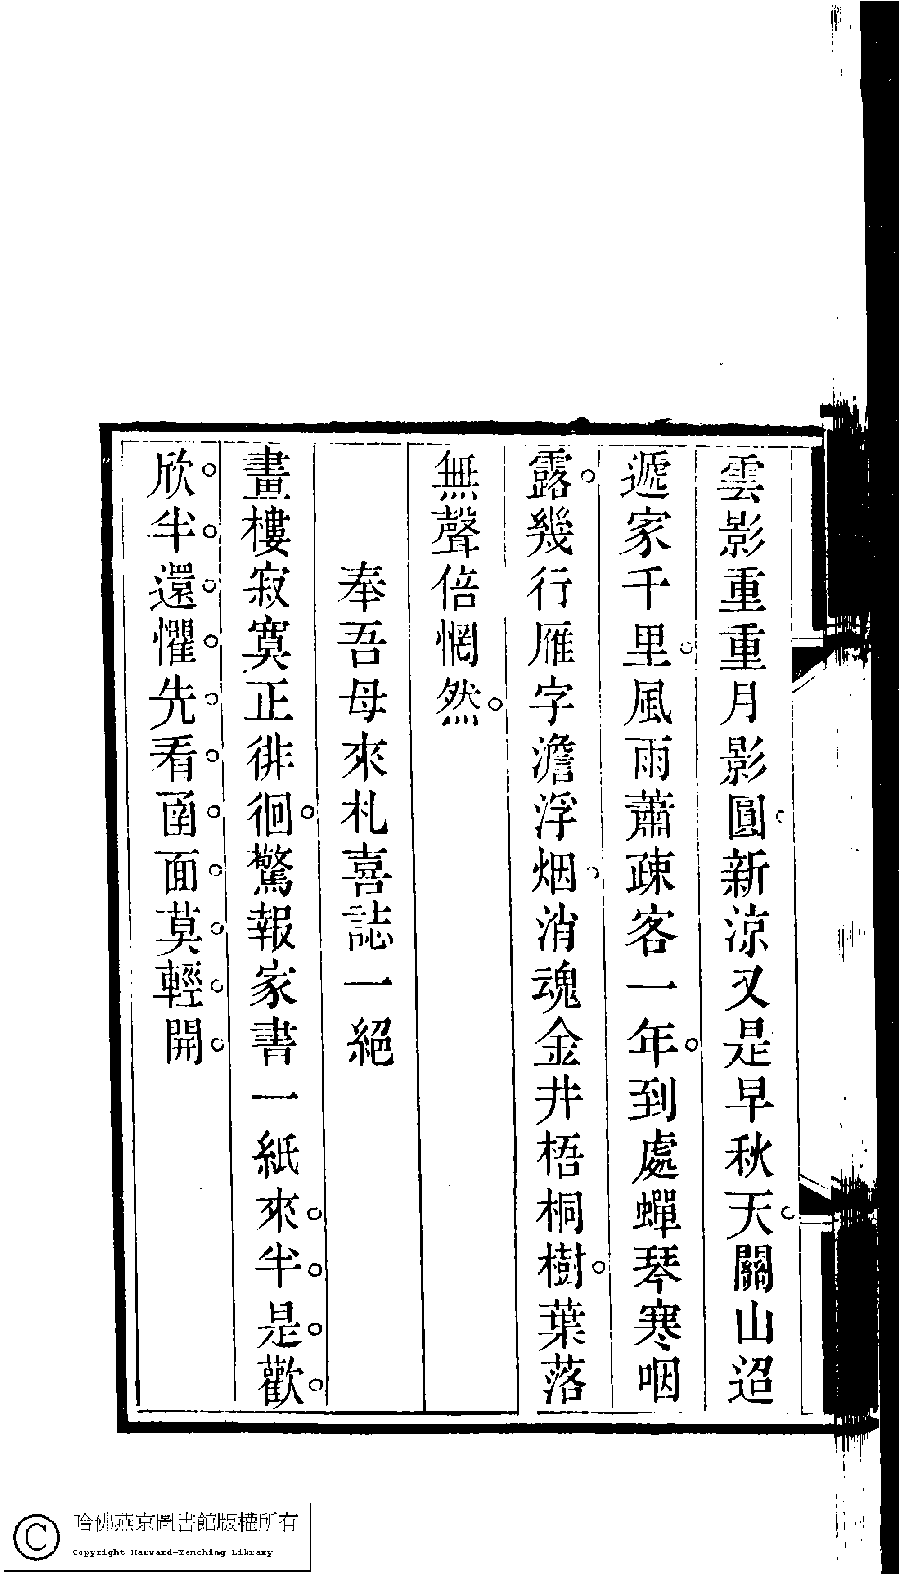 雲影重重月影圓新涼又是早秋天關山迢
遞家千里風雨蕭疎客一年到處蟬琴寒咽
露幾行雁字澹浮烟消魂金井梧桐樹葉落
無聲倍惘然
奉吾母來札喜誌一絕
畫樓寂寞正徘徊驚報家書一紙來半是歡
欣半還懼先看函面莫輕開
哈佛燕京圖書館版權所有
Copyright Harvard-Yenching Library